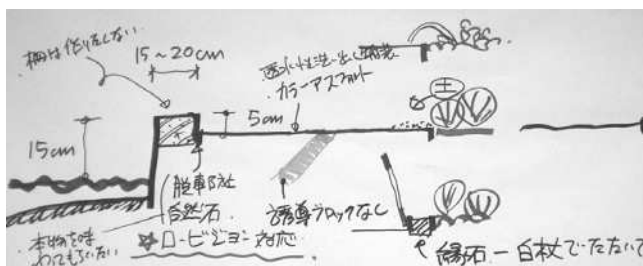 柵は作りたくない
15~20cm
透水性洗い出し舗装
カラーアスファルト
土
5cm
15cm
脱車防止
自然石
誘導ブロックなし
本物を味
わってもらいたい
☆ロービジョン対応
縁石ー白杖でたたいて